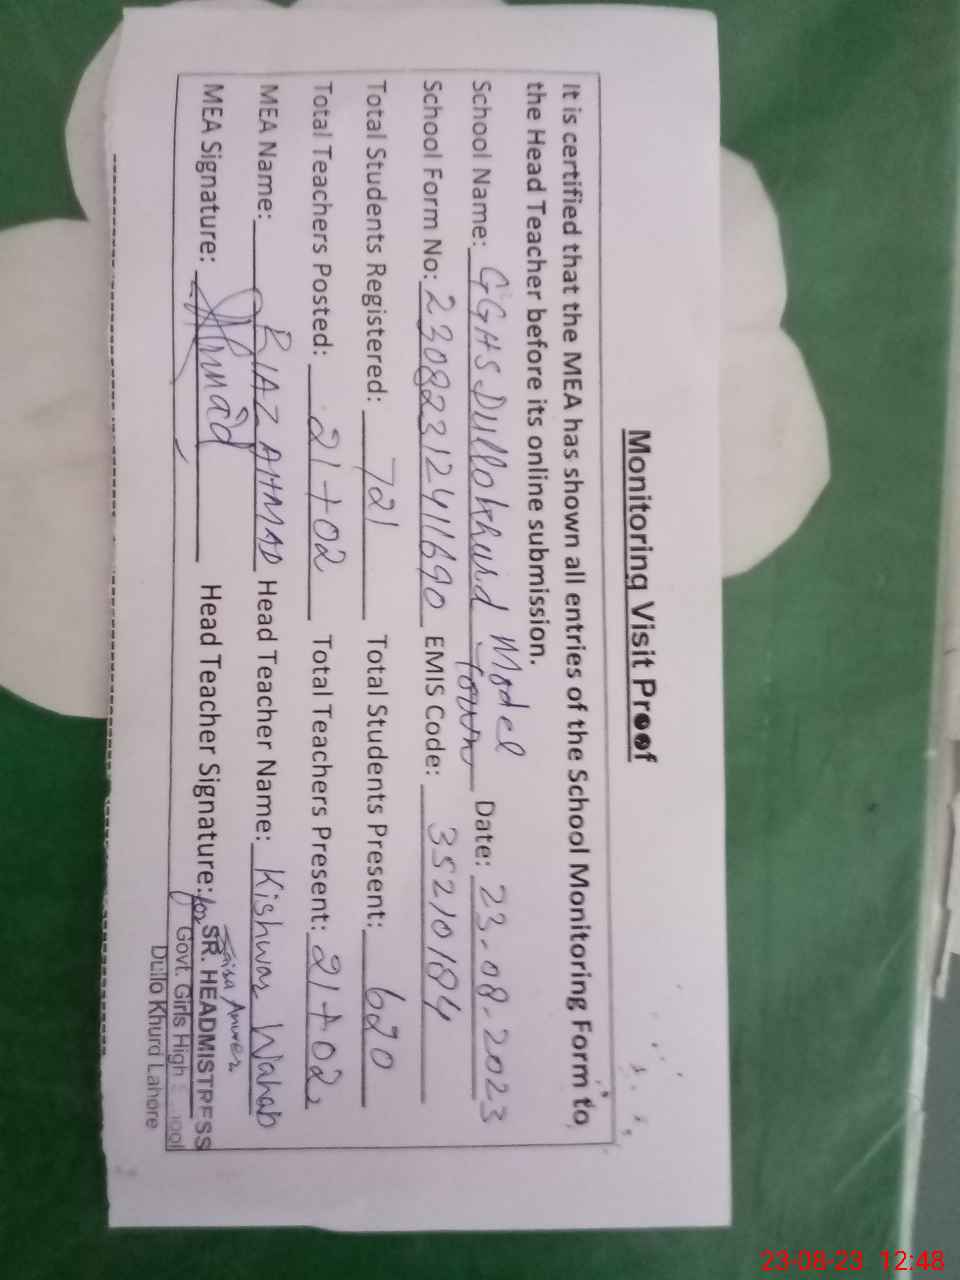 Monitoring Visit Proof
It is certified that the MEA has shown all entries of the School Monitoring Form to
the Head Teacher before its online submission.
School Name: GGHS Dullokhurd Model Town Date: 23-08-2023
School Form No: 23082312411690 EMIS Code: 35210184
Total Students Registered: 721 Total Students Present: 620
Total Teachers Posted: 21+02 Total Teachers Present: 21+02
MEA Name: RIAZ AHMAD Head Teacher Name: Kishwar Wahab
MEA Signature: Ahmad Head Teacher Signature: for
Anwer
SR. HEADMISTRESS
Govt. Girls High School
Dullo Khurd Lahore
23-08-23 12:48